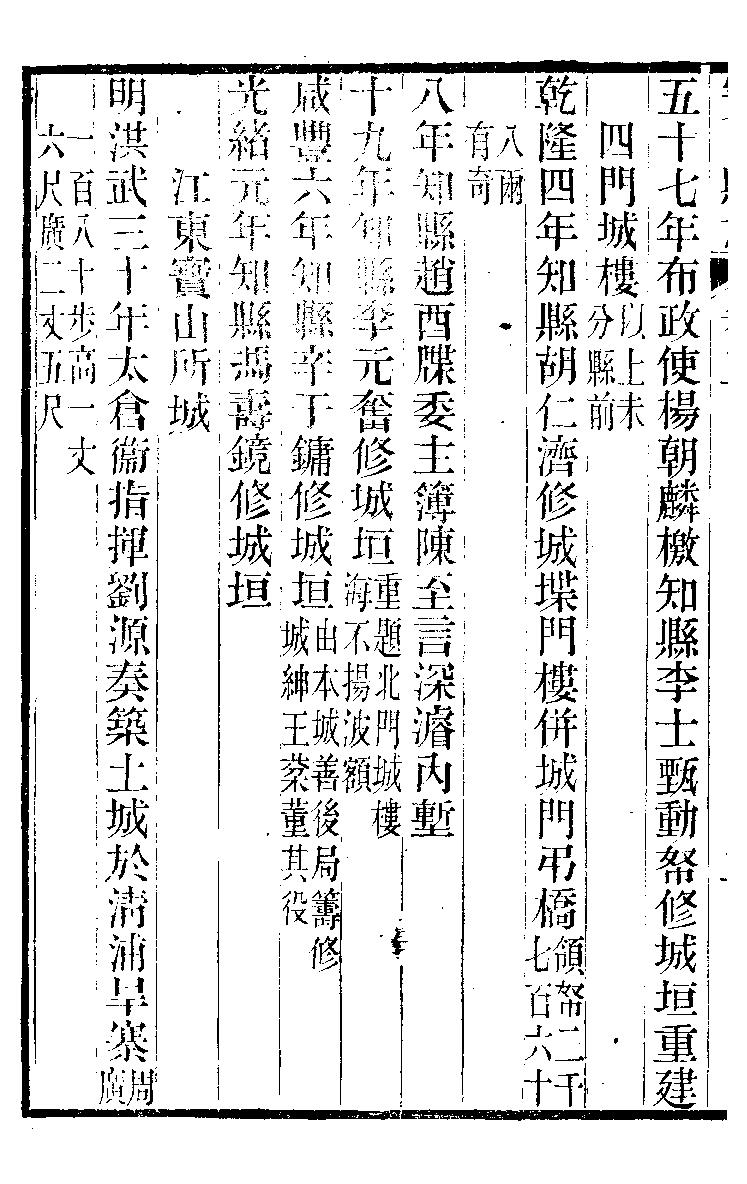 五十七年布政使楊朝麟檄知縣李士甄動帑修城垣重建
四門城樓以上未分縣前
乾隆四年知縣胡仁濟修城堞門樓併城門弔橋領帑二千七百六十
八兩有奇
八年知縣趙酉牒委主簿陳至言深濬內塹
十九年知縣李元奮修城垣重題北門城樓海不揚波額
咸豐六年知縣李丁鏞修城垣由本城善後局籌修城紳王棻董其役
光緒元年知縣馮壽鏡修城垣
江東寶山所城
明洪武三十年太倉衞指揮劉源奏築土城於淸浦旱寨周廣
一百八十步高一丈六尺廣二丈五尺